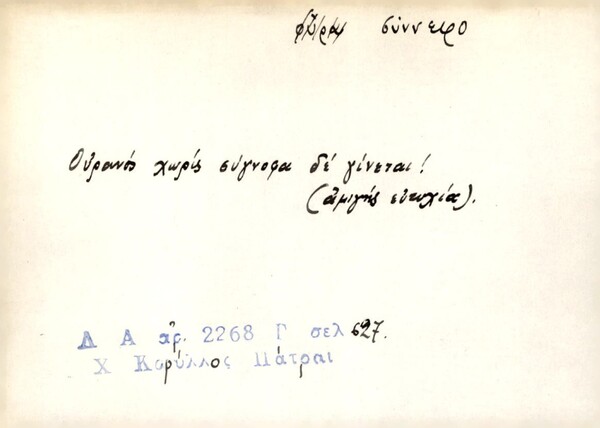 σύννεφο
Οὐρανός χωρίς σύγνοφα δέ γίνεται!
(ἀμιγής εὐτυχία).
Λ Α ἀρ. 2268 Γ σελ 627.
Χ Κορύλλος Πάτραι